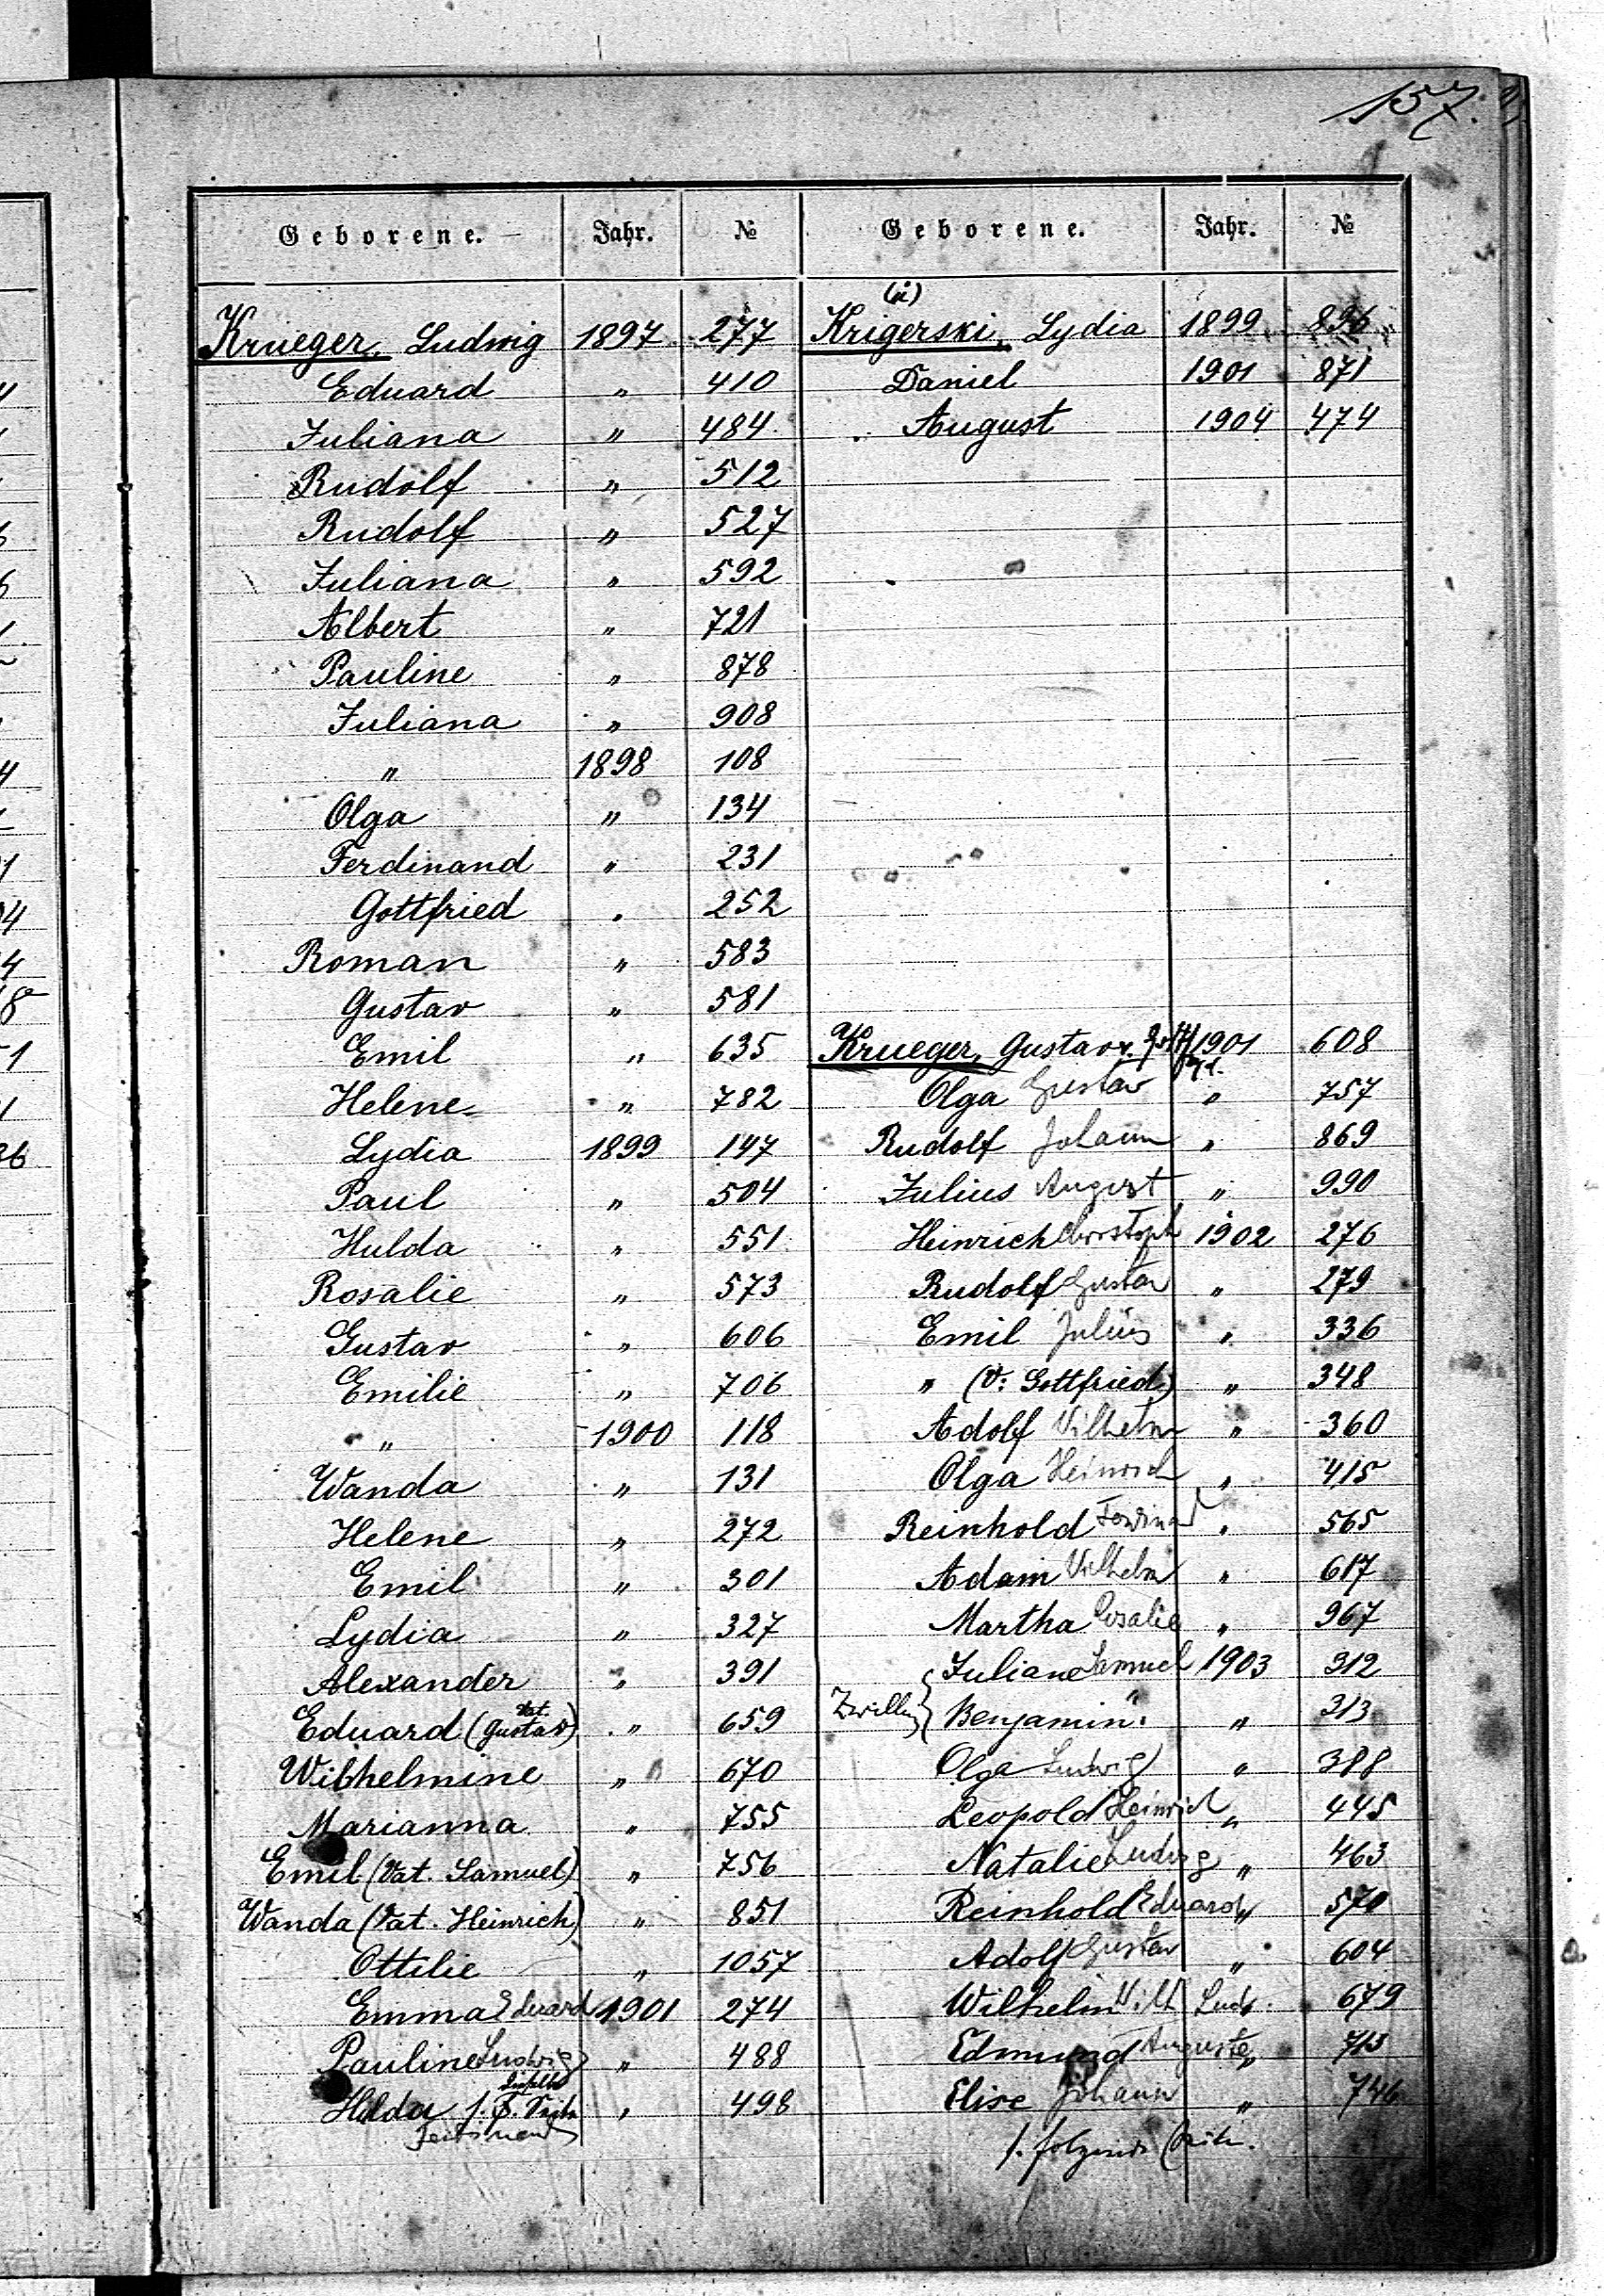 157.
Geborene. Jahr. №
Krueger, Ludwig 1897 277
Eduard " 410
Juliana " 484
Rudolf " 512
Rudolf " 527
Juliana " 592
Albert " 721
Pauline " 878
Juliana " 908
" 1898 108
Olga " 134
Ferdinand " 231
Gottfried " 252
Roman " 583
Gustav " 581
Emil " 635
Helene " 782
Lydia 1899 147
Paul " 504
Hulda " 551
Rosalie " 573
Gustav " 606
Emilie " 706
" 1900 118
Wanda " 131
Helene " 272
Emil " 301
Lydia " 327
Alexander " 391
Eduard (Vat. Gustav) " 659
Wilhelmine " 670
Marianna " 755
Emil (Vat. Samuel) " 756
Wanda (Vat. Heinrich) " 851
Ottilie " 1057
Emma Eduard 1901 274
Pauline Ludwig " 488
Hulda " 498
Geborene. Jahr. №
(ü)
Krigerski, Lydia 1899 896
Daniel 1901 871
August 1904 474
Krueger, Gustav v. 1901 608
Olga Gustav " 757
Rudolf Johann " 869
Julius August " 990
Heinrich Christoph 1902 276
Rudolf Gustav " 279
Emil Julius " 336
" (V: Gottfried) " 348
Adolf Wilhelm " 360
Olga Heinrich " 415
Reinhold Ferdinand " 565
Adam Wilhelm " 617
Martha Rosalie " 967
Juliane Samuel 1903 312
Zwilling Benjamin " " 313
Olga Ludwig " 388
Leopold Heinrich " 445
Natalie Ludwig " 463
Reinhold Eduard " 570
Adolf Gustav " 604
Wilhelm Wilh Ludw. 679
Edmund Auguste " 713
Elise Johann " 746
s. folgende Seite.